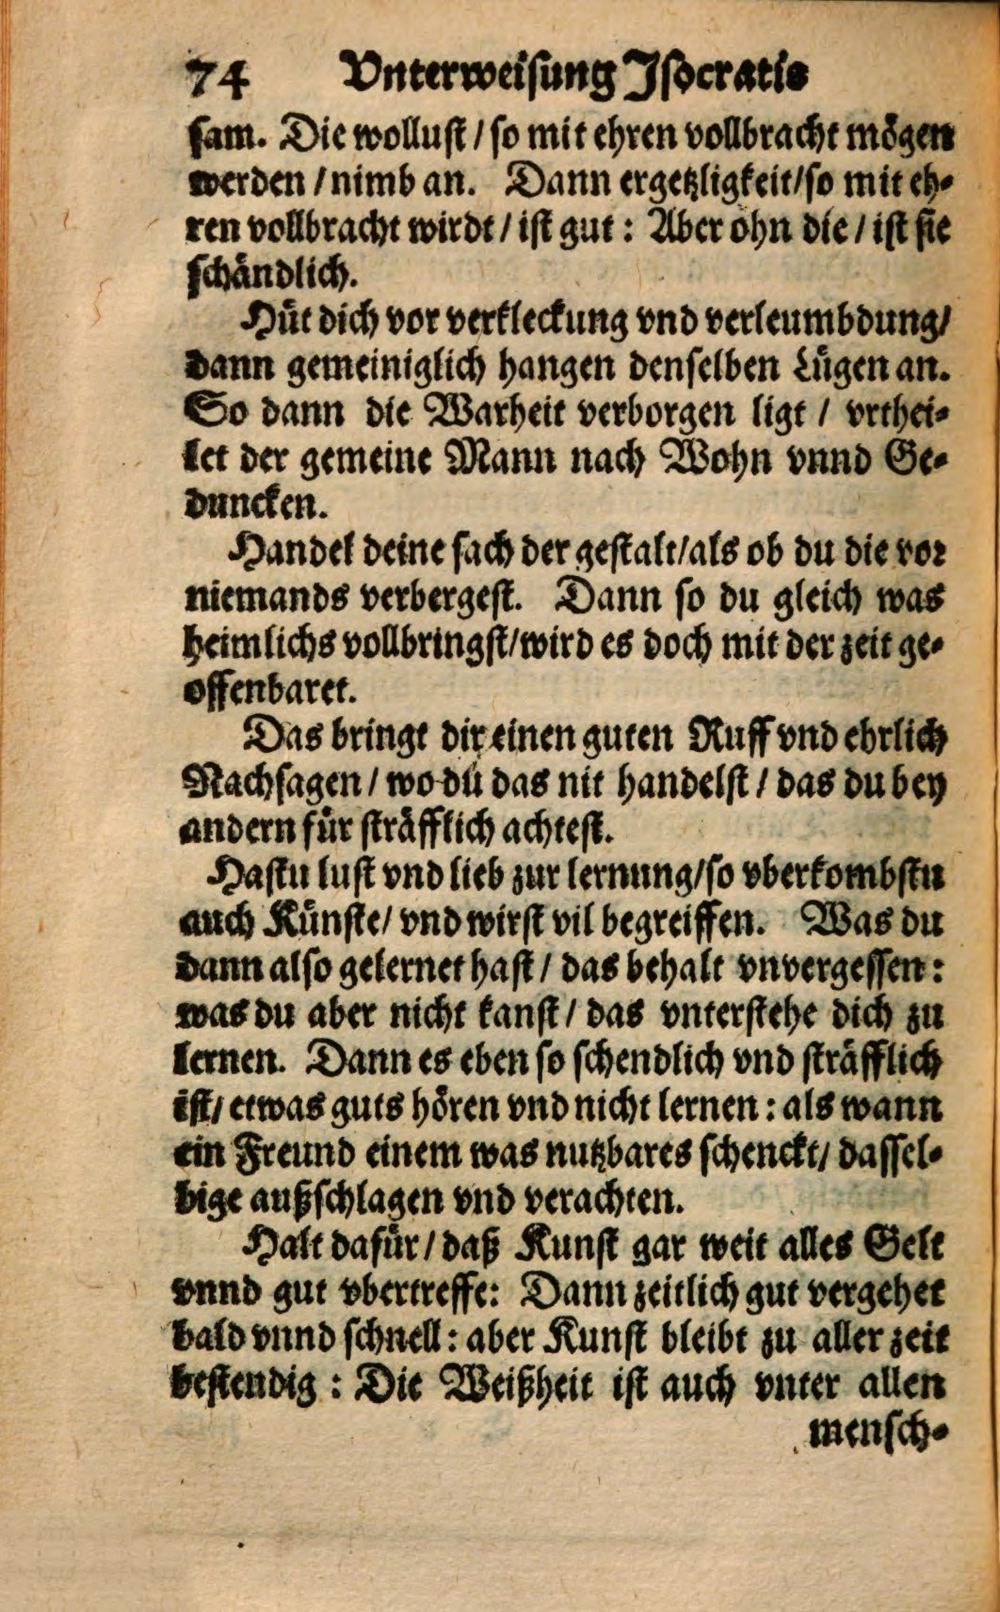 74 Vnterweisung Isocratis
sam. Die wollust / so mit ehren vollbracht mögen
werden / nimb an. Dann ergetzligkeit / so mit eh-
ren vollbracht wirdt / ist gut : Aber ohn die / ist sie
schändlich.
Hüt dich vor verkleckung vnd verleumbdung /
dann gemeiniglich hangen denselben Lügen an.
So dann die Warheit verborgen ligt / vrthei-
let der gemeine Mann nach Wohn vnnd Ge-
duncken.
Handel deine sach der gestalt / als ob du die vor
niemands verbergest. Dann so du gleich was
heimlichs vollbringst / wird es doch mit der zeit ge-
offenbaret.
Das bringt dir einen guten Ruff vnd ehrlich
Nachsagen / wo du das nit handelst / das du bey
andern für sträfflich achtest.
Hastu lust vnd lieb zur lernung / so vberkombstu
auch Künste / vnd wirst vil begreiffen. Was du
dann also gelernet hast / das behalt vnvergessen :
was du aber nicht kanst / das vnterstehe dich zu
lernen. Dann es eben so schendlich vnd sträfflich
ist / etwas guts hören vnd nicht lernen : als wann
ein Freund einem was nutzbares schenckt / dassel-
bige außschlagen vnd verachten.
Halt dafür / daß Kunst gar weit alles Gelt
vnnd gut vbertreffe : Dann zeitlich gut vergehet
bald vnnd schnell : aber Kunst bleibt zu aller zeit
bestendig : Die Weißheit ist auch vnter allen
mensch-